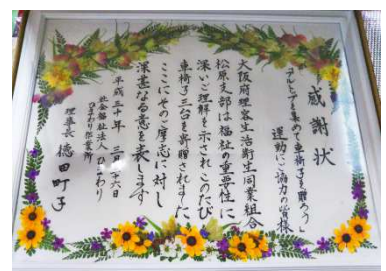 感謝状
「プルトップを集めて車椅子を贈ろう」
運動にご協力の皆様
大阪府理容生活衛生同業組合
松原支部は福祉の重要性に
深いご理解を示されこのたび
車椅子三台を寄贈されました
ここにその厚志に対し
深甚なる意を表します
平成三十年 三月二十六日
社会福祉法人 ひまわり
ひまわり作業所
理事長 徳田町子